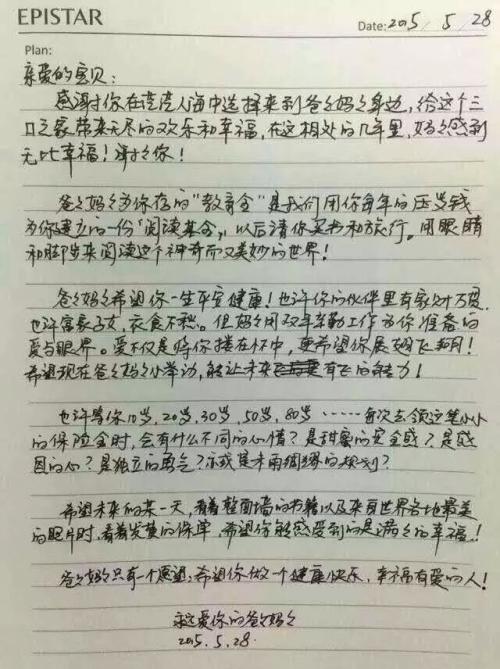 EPISTAR
Date: 2015 / 5 / 28
Plan:
亲爱的宝贝：
感谢你在茫茫人海中选择来到爸々妈々身边，给这个三
口之家带来无尽的欢乐和幸福，在这相处的几年里，妈々感到
无比幸福！谢々你！
爸々妈々为你存的“教育金”是我们用你每年的压岁钱
为你建立的一份“阅读基金”，以后请你买书和旅行。用眼睛
和脚步来阅读这个神奇而又美妙的世界！
爸々妈々希望你一生平安健康！也许你的伙伴里有家财万贯，
也许富家子女，衣食不愁。但妈々用双手辛勤工作为你准备的
爱与眼界。爱不仅是将你搂在怀中，更希望你展翅飞翔！
希望现在爸々妈々小举动，能让未来有飞的能力！
也许等你10岁，20岁，30岁，50岁，80岁……每次去领这笔小小
的保险金时，会有什么不同的心情？是甜蜜的安全感？是感
恩的心？是独立的勇气？亦或是未雨绸缪的规划？
希望未来的某一天，看着整面墙的书籍以及来自世界各地最美
的照片时，看着发黄的保单，希望你能感受到的是满々的幸福！
爸々妈々只有一个愿望，希望你做一个健康快乐，幸福有爱的人！
永远爱你的爸々妈々
2015.5.28.